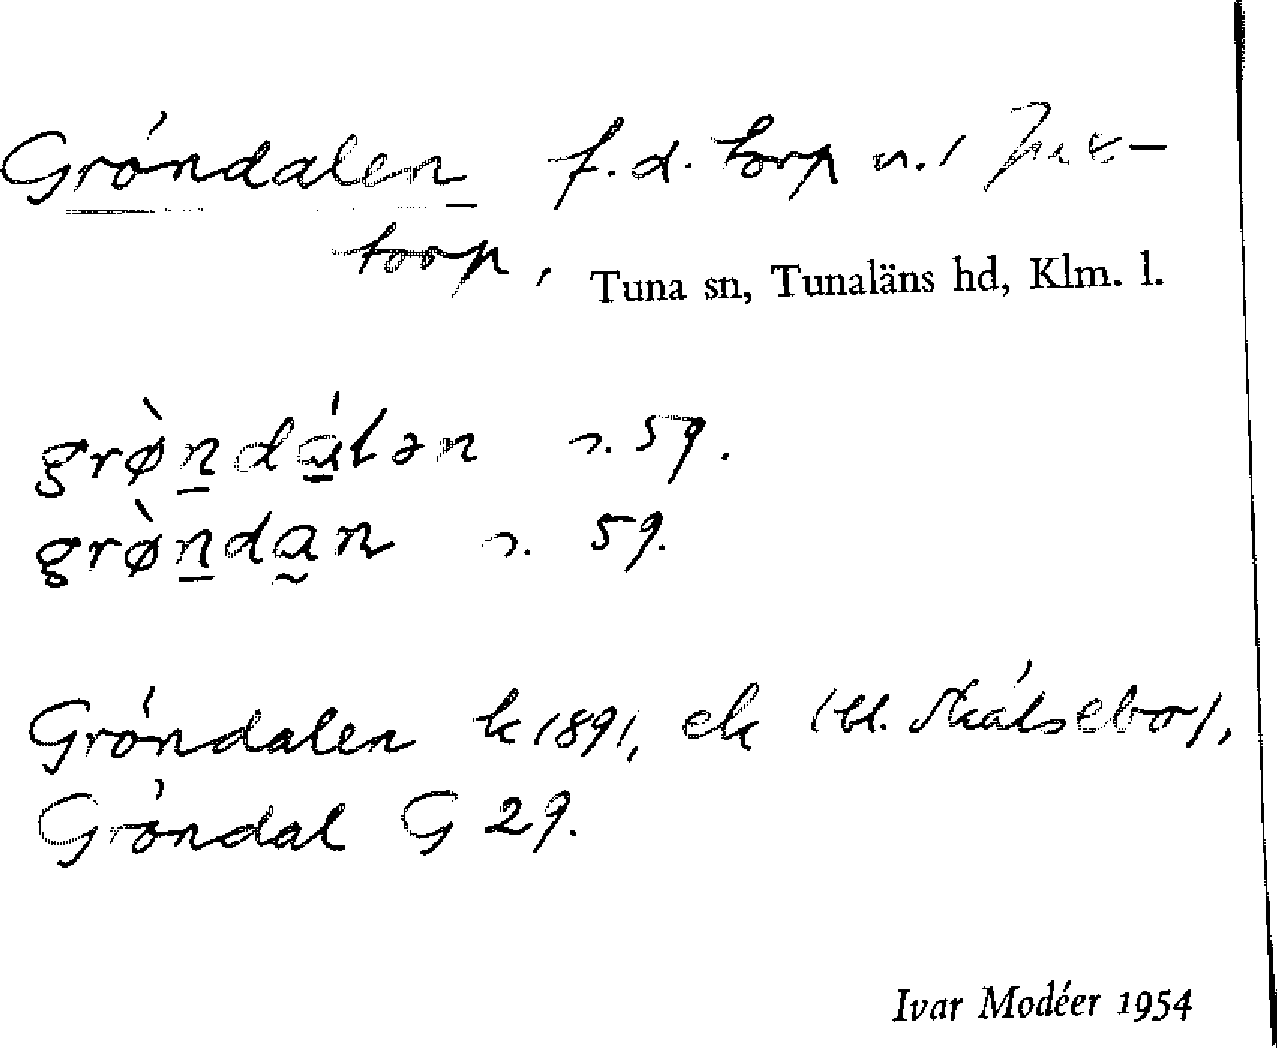 Gröndalen f.d. torp u.
torp, Tuna sn, Tunaläns hd, Klm. l.
grø̀ndálən s. 59.
grø̀ndan s. 59.
Gröndalen k 1891, ek
Gröndal G 29.
Ivar Modéer 1954